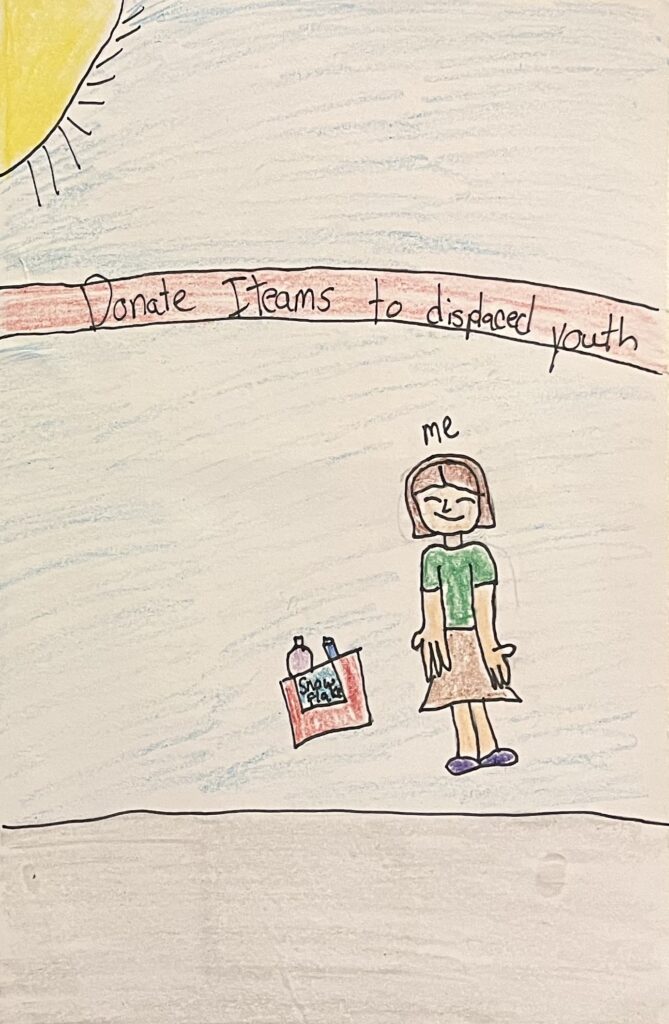 Donate Iteams to displaced youth
me
Snow
flake